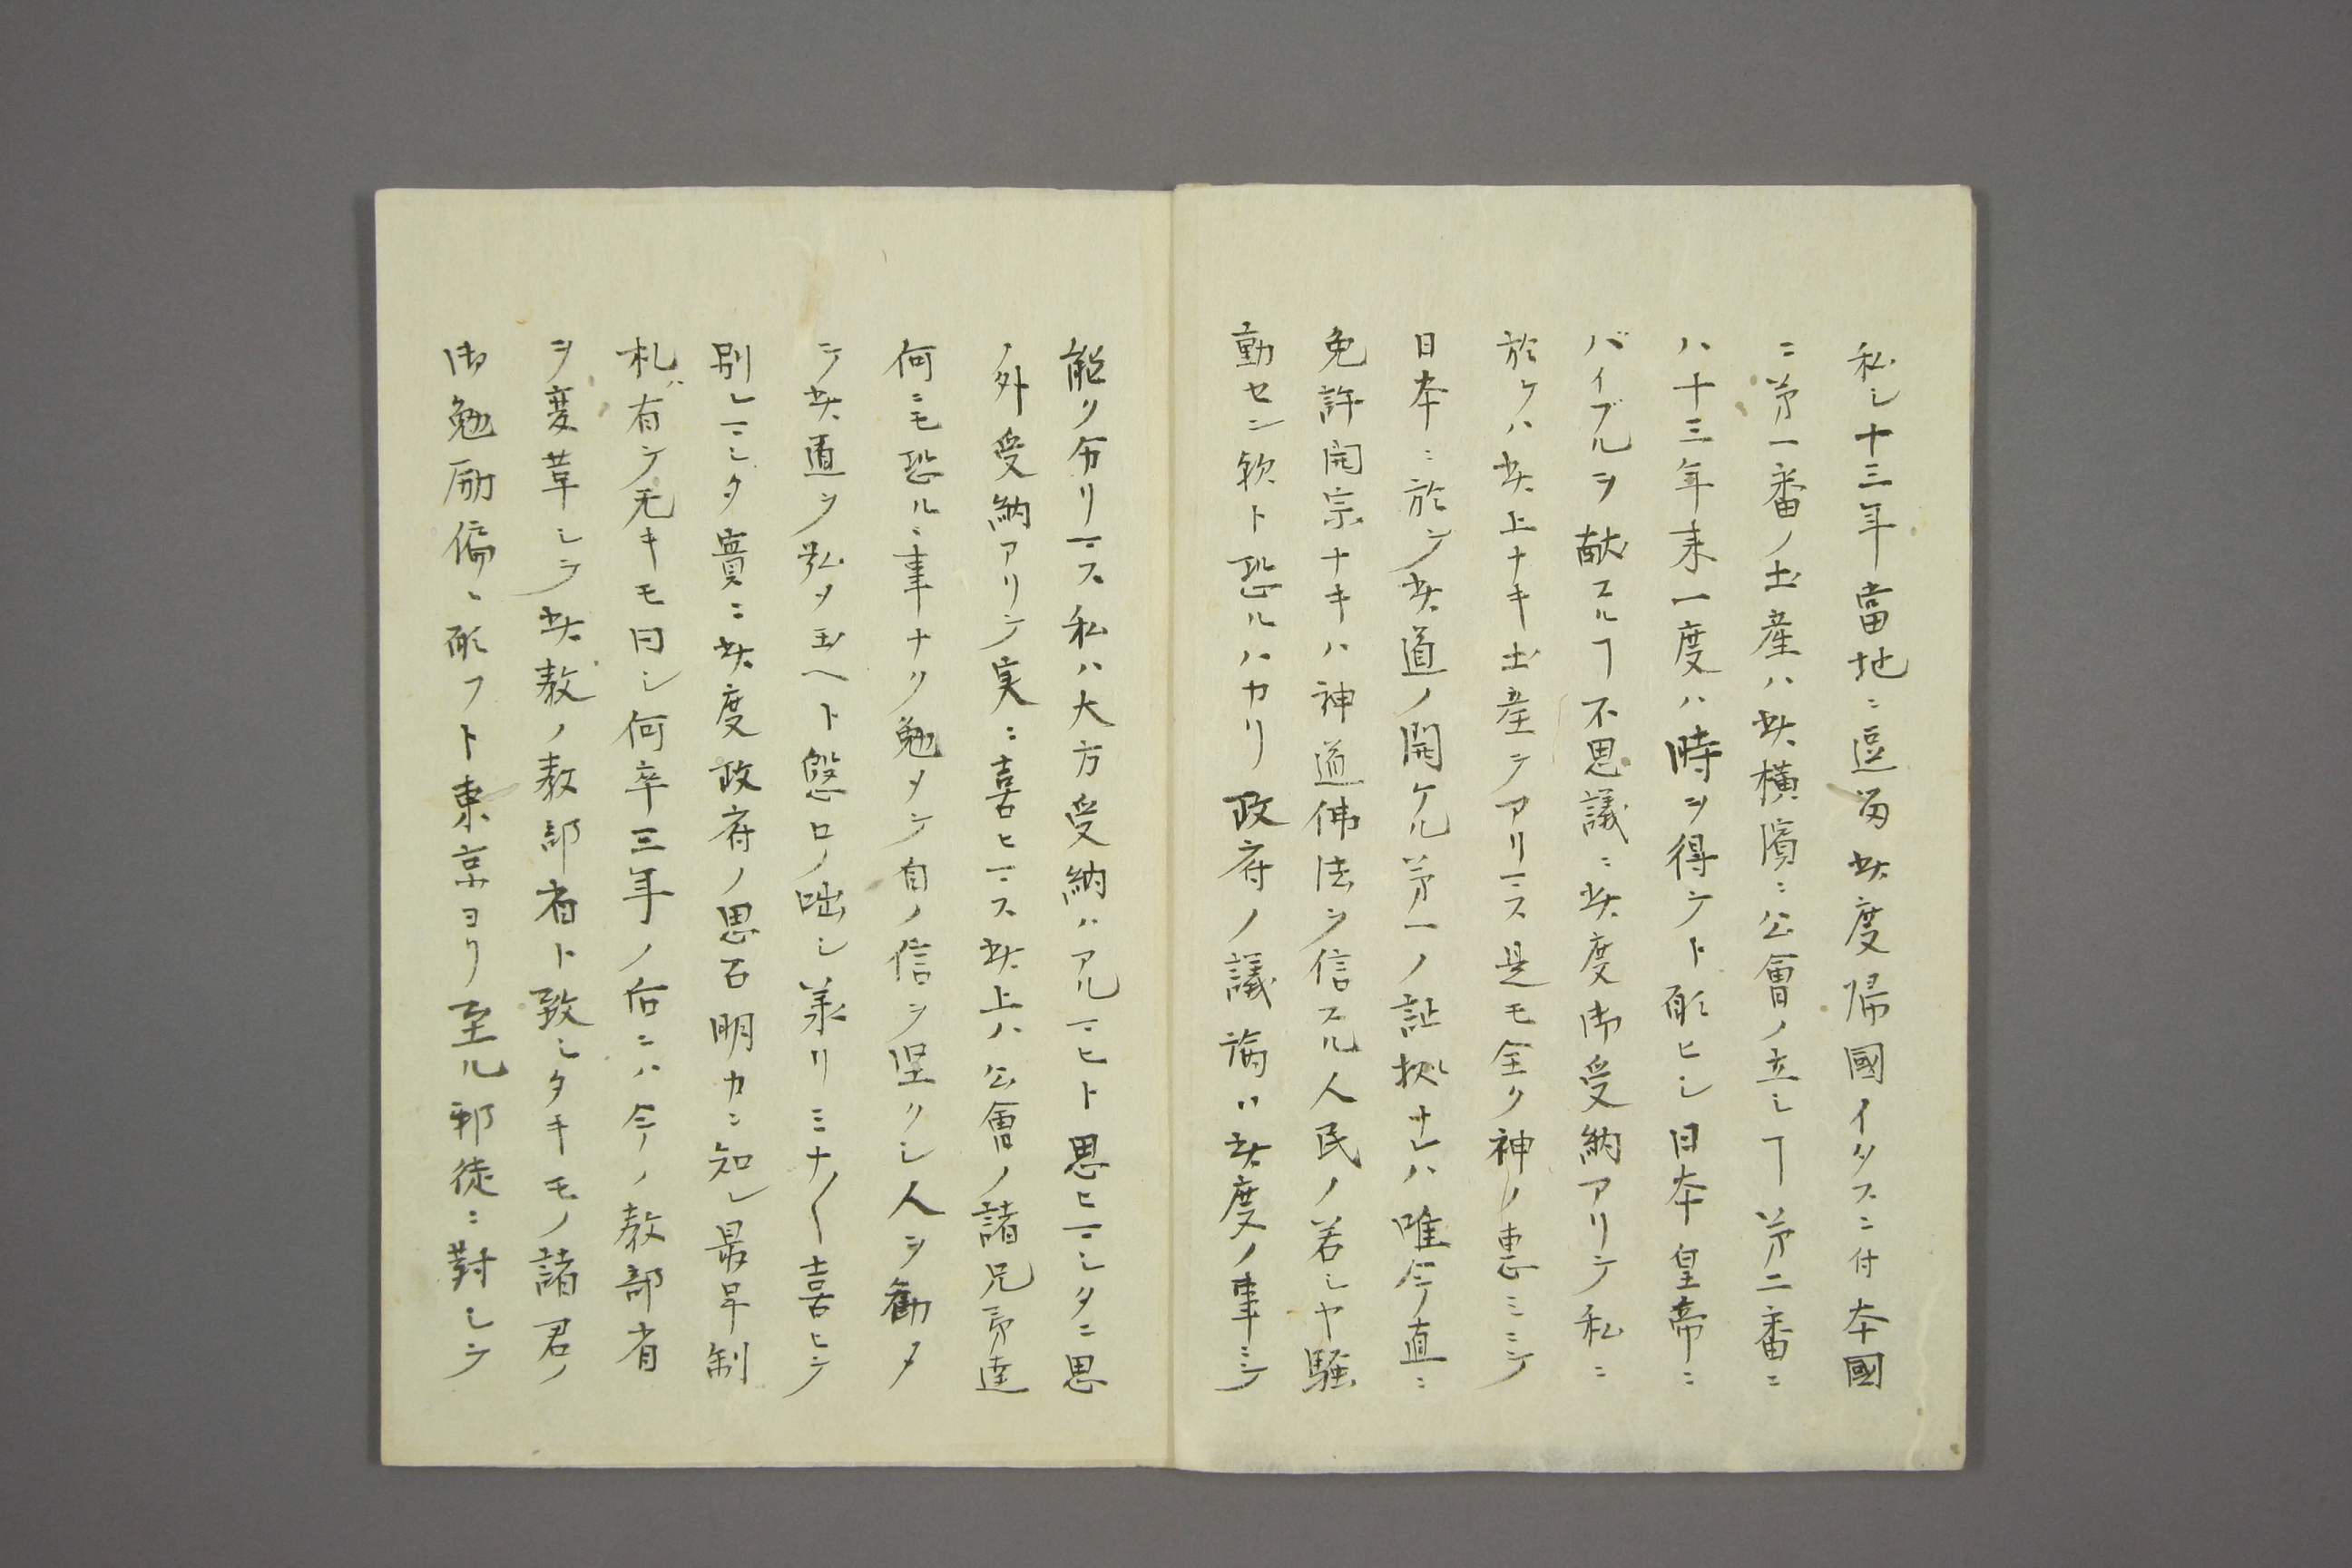 私シ十三年當地ニ逗畄此度帰國イタスニ付本國
ニ㐧一番ノ土産ハ此横濱ニ公會ノ立シヿ㐧二番ニ
ハ十三年来一度ハ時ヲ得テト願ヒシ日本皇帝ニ
バイブルヲ献スルヿ不思議ニ此度御受納アリテ私ニ
於ケハ此上ナキ土産テアリマス是モ全ク神ノ惠ミニテ
日本ニ於テ此道ノ開ケル㐧一ノ証拠サレハ唯今直ニ
免許開宗ナキハ神道佛法ヲ信スル人民ノ若シヤ騒
動セン欤ト恐ルハカリ政府ノ議論ハ此度ノ事ニテ
能ク分リマス私ハ大方受納ハアルマヒト思ヒマシタニ思
ノ外受納アリテ実ニ喜ヒマス此上ハ公會ノ諸兄弟達
何ニモ恐ルヽ事ナク勉メテ自ノ信ヲ堅クシ人ヲ勸メ
テ此道ヲ弘メ玉ヘト慇ロノ咄シ羕リミナ〱喜ヒテ
別レマシタ實ニ此度政府ノ思召明カニ知レ最早制
札ハ有テ无キモ同シ何卒三年ノ后ニハ今ノ教部省
ヲ変革シテ此教ノ教部省ト致シタキモノ諸君ノ
御勉励偏ニ願フト東京ヨリ至ル邪徒ニ對シテ